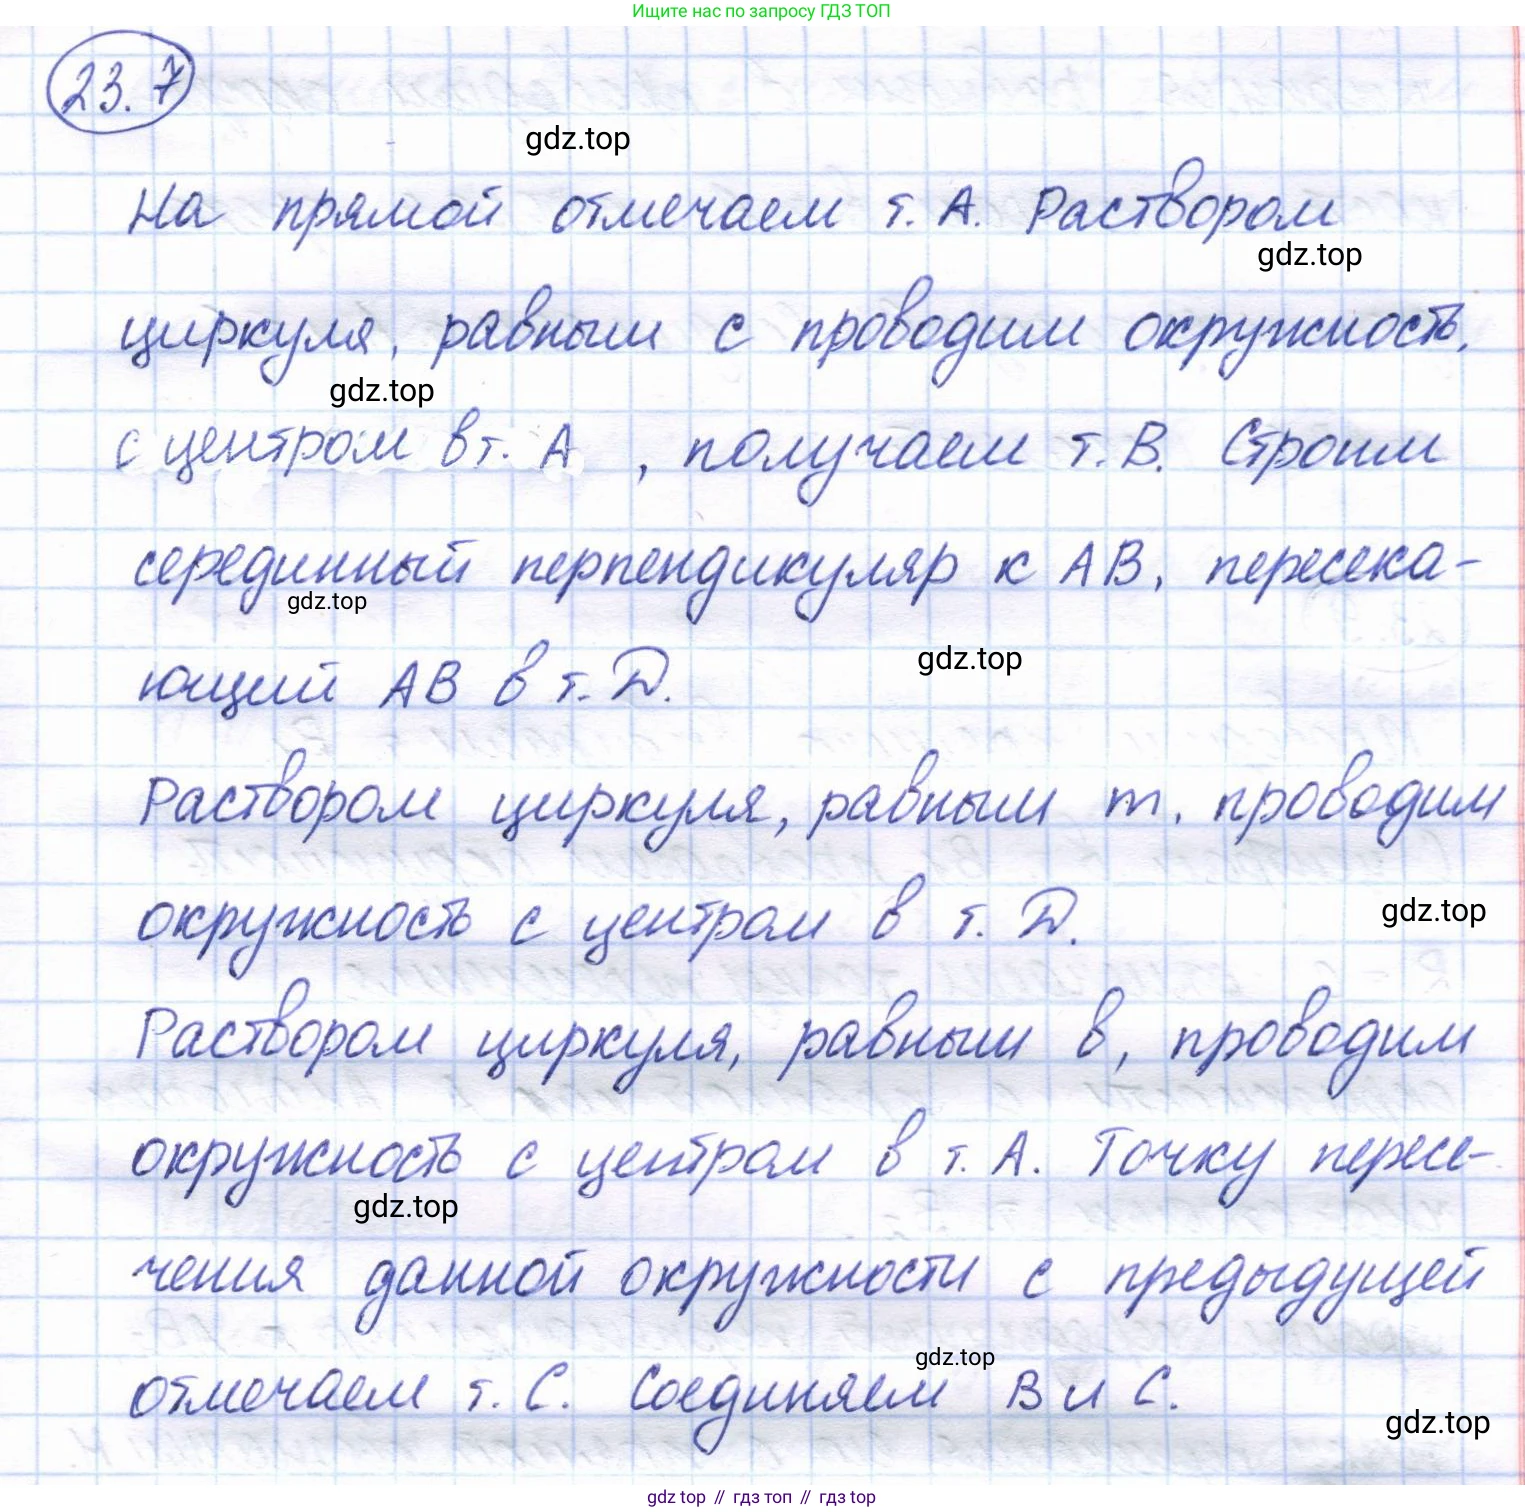 Ищите нас по запросу ГДЗ ТОП
23.7
gdz.top
На прямой отмечаем т. А. Раствором
gdz.top
циркуля, равным с проводим окружность,
gdz.top
с центром в т. А , получаем т. В. Строим
серединный перпендикуляр к АВ, пересека-
gdz.top
ющий АВ в т. D.
gdz.top
Раствором циркуля, равным m, проводим
окружность с центром в т. D.
gdz.top
Раствором циркуля, равным в, проводим
окружность с центром в т. А. Точку пересе-
gdz.top
чения данной окружности с предыдущей
gdz.top
отмечаем т. С. Соединяем В и С.
gdz.top
gdz top // гдз топ // гдз top